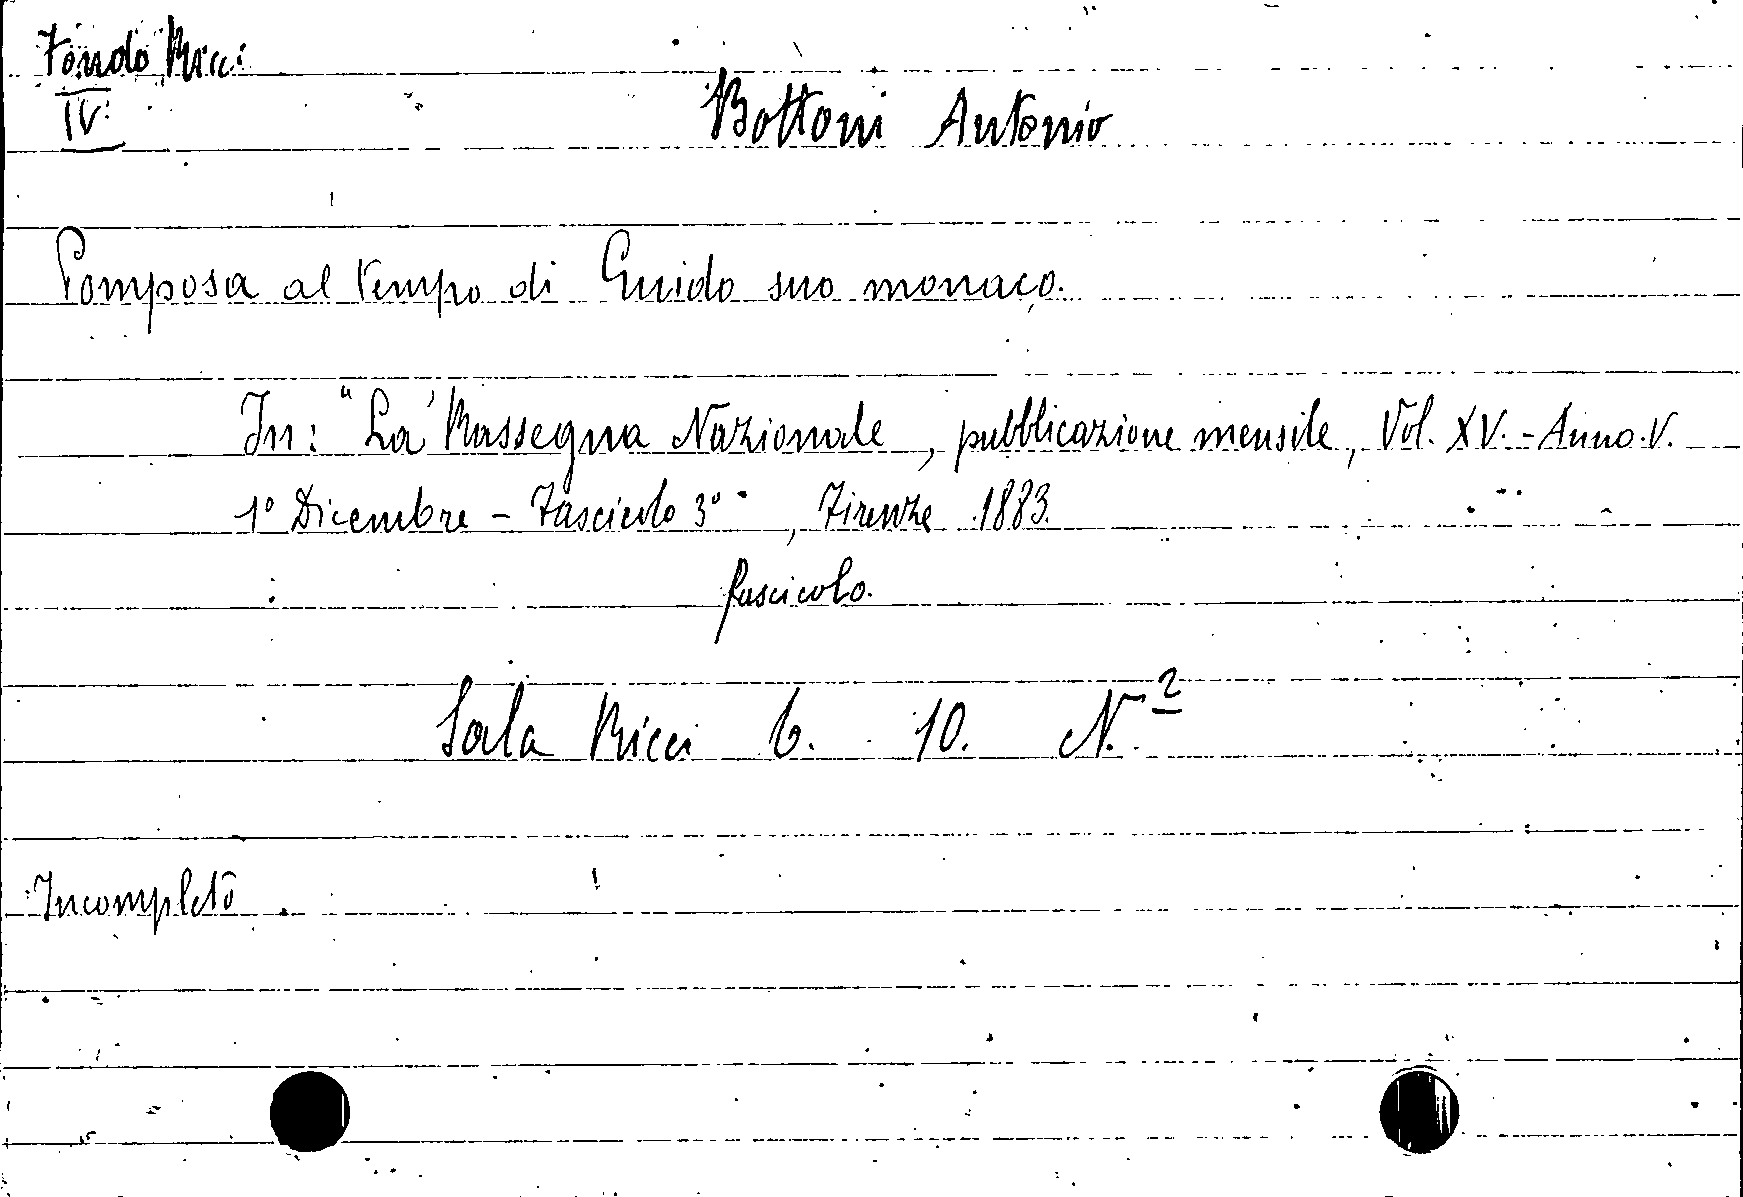 Fondo Ricci
IV.
Bottoni Antonio
Pomposa al tempo di Guido suo monaco.
In: "La Rassegna Nazionale, pubblicazione mensile, Vol. XV. - Anno V.
1° Dicembre - Fascicolo 3°, Firenze 1883.
fascicolo.
Sala Ricci 6. 10. N. 2
Incompleto.